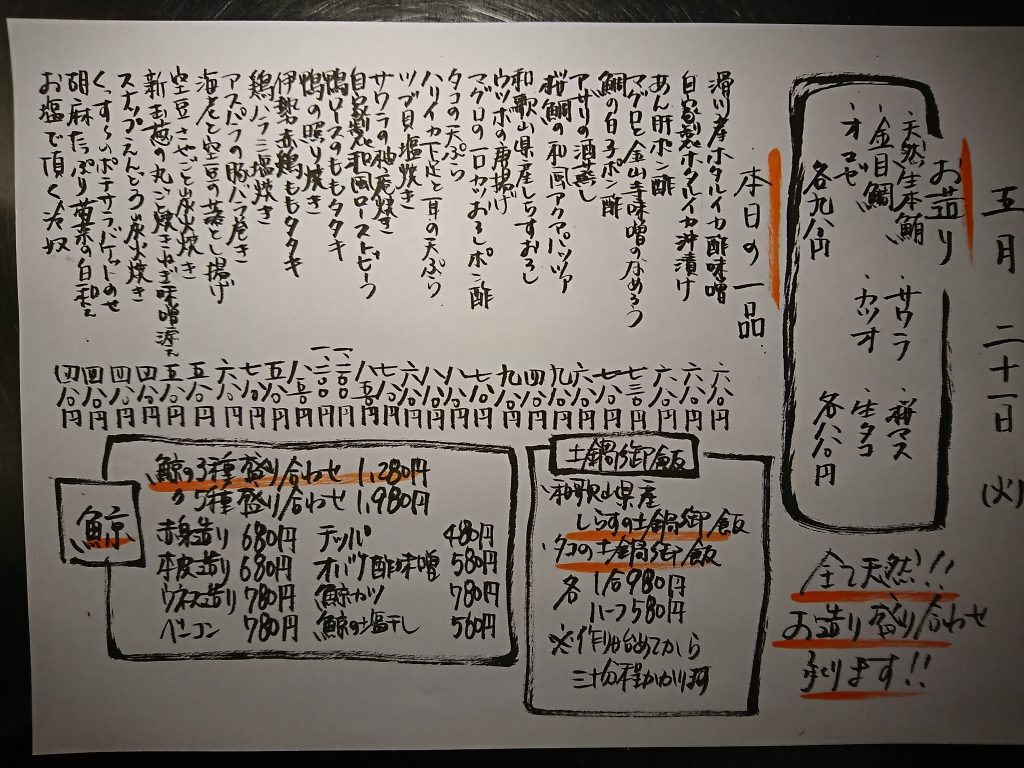 五月 二十一日 (火)
お造り
天然生本鮪
金目鯛
オコゼ
各九八〇円
サワラ
カツオ
桜マス
生タコ
各八八〇円
全て天然!!
お造り盛り合わせ
承ります!!
本日の一品
滑川産ホタルイカ酢味噌 六八〇円
自家製ホタルイカ沖漬け 六八〇円
あん肝ポン酢 六八〇円
マグロと金山寺味噌のなめろう 七三〇円
鯛の白子ポン酢 七八〇円
アサリの酒蒸し 六八〇円
桜鯛の和風アクアパッツァ 九八〇円
和歌山県産しらすおろし 四八〇円
ウツボの唐揚げ 九八〇円
マグロの一口カツおろしポン酢 七八〇円
タコの天ぷら 八八〇円
ハリイカ下足と耳の天ぷら 八八〇円
ツブ貝塩焼き 六八〇円
サワラの柚庵焼き 七八〇円
自家製和風ローストビーフ 八五〇円
鴨ロースのももタタキ 一、一〇〇円
鴨の照り焼き 一、二〇〇円
伊勢赤鶏ももタタキ 八五〇円
鶏ハラミ塩焼き 五八〇円
アスパラの豚バラ巻き 七八〇円
海老と空豆の蓑と揚げ 六八〇円
空豆さやごと炭火焼き 五八〇円
新玉葱の丸ごと焼きねぎ味噌添え 五八〇円
スナップえんどう炭火焼き 四八〇円
くんすぃ〜のポテサラバゲットのせ 四八〇円
胡麻たっぷり菊菜の白和え 四八〇円
お塩で頂く冷奴 四八〇円
土鍋御飯
和歌山県産
しらすの土鍋御飯
タコの土鍋御飯
各 1合980円
ハーフ580円
※作り始めてから
三十分程かかります
鯨
鯨の3種盛り合わせ 1,280円
〃 5種盛り合わせ 1,980円
赤身造り 680円
本皮造り 680円
ウネス造り 780円
ベーコン 780円
テッパ 480円
オバケ酢味噌 580円
鯨カツ 780円
鯨の塩干し 560円